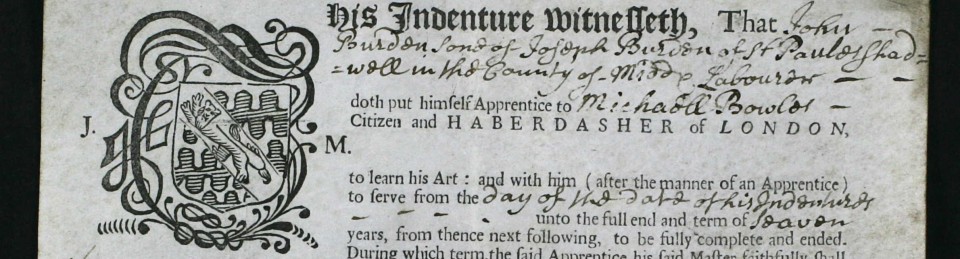 His Indenture witnesseth, That John
Burden Sone of Joseph Burden of St Paules Shad=
=well in the County of Middx Labourer
doth put himself Apprentice to Michaell Bowles
J. Citizen and HABERDASHER of LONDON,
M.
to learn his Art : and with him (after the manner of an Apprentice)
to serve from the day of the date of his Indentures
unto the full end and term of seaven
years, from thence next following, to be fully complete and ended.
During which term, the said Apprentice his said Master faithfully shall